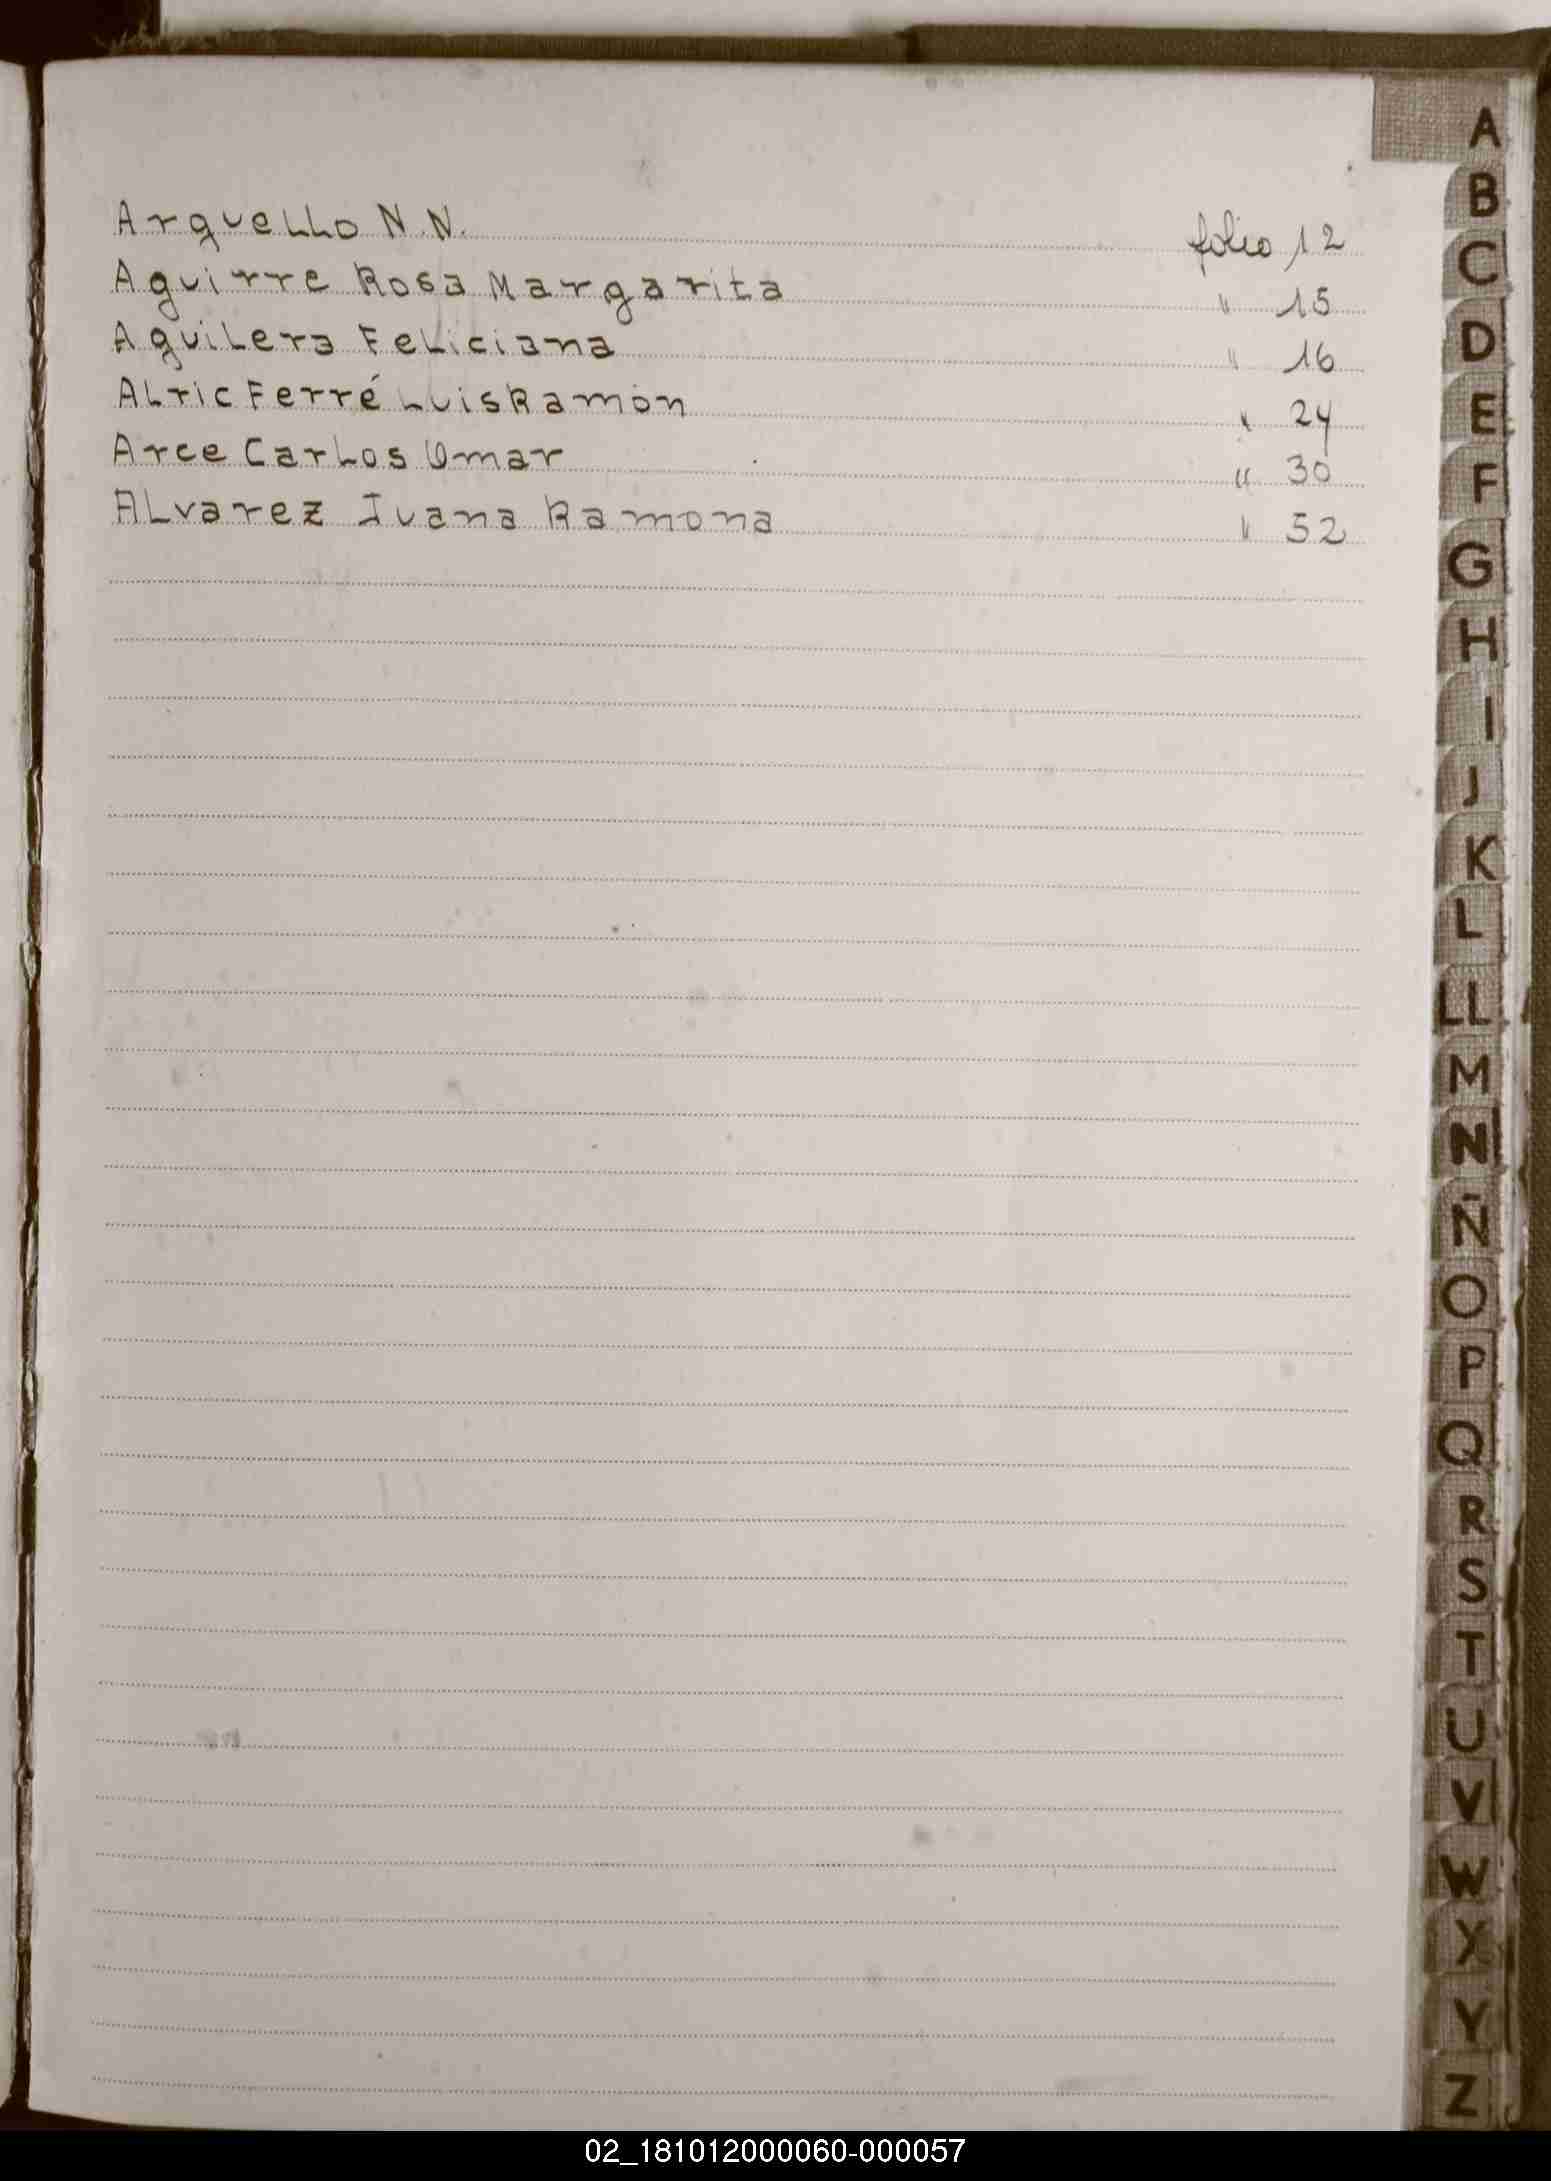 Arguello N.N. folio 12
Aguirre Rosa Margarita " 15
Aguilera Feliciana " 16
Altic Ferré Luis Ramón " 24
Arce Carlos Omar " 30
Alvarez Juana Ramona " 52
A
B
C
D
E
F
G
H
I
J
K
L
LL
M
N
Ñ
O
P
Q
R
S
T
U
V
W
X
Y
Z
02_181012000060-000057